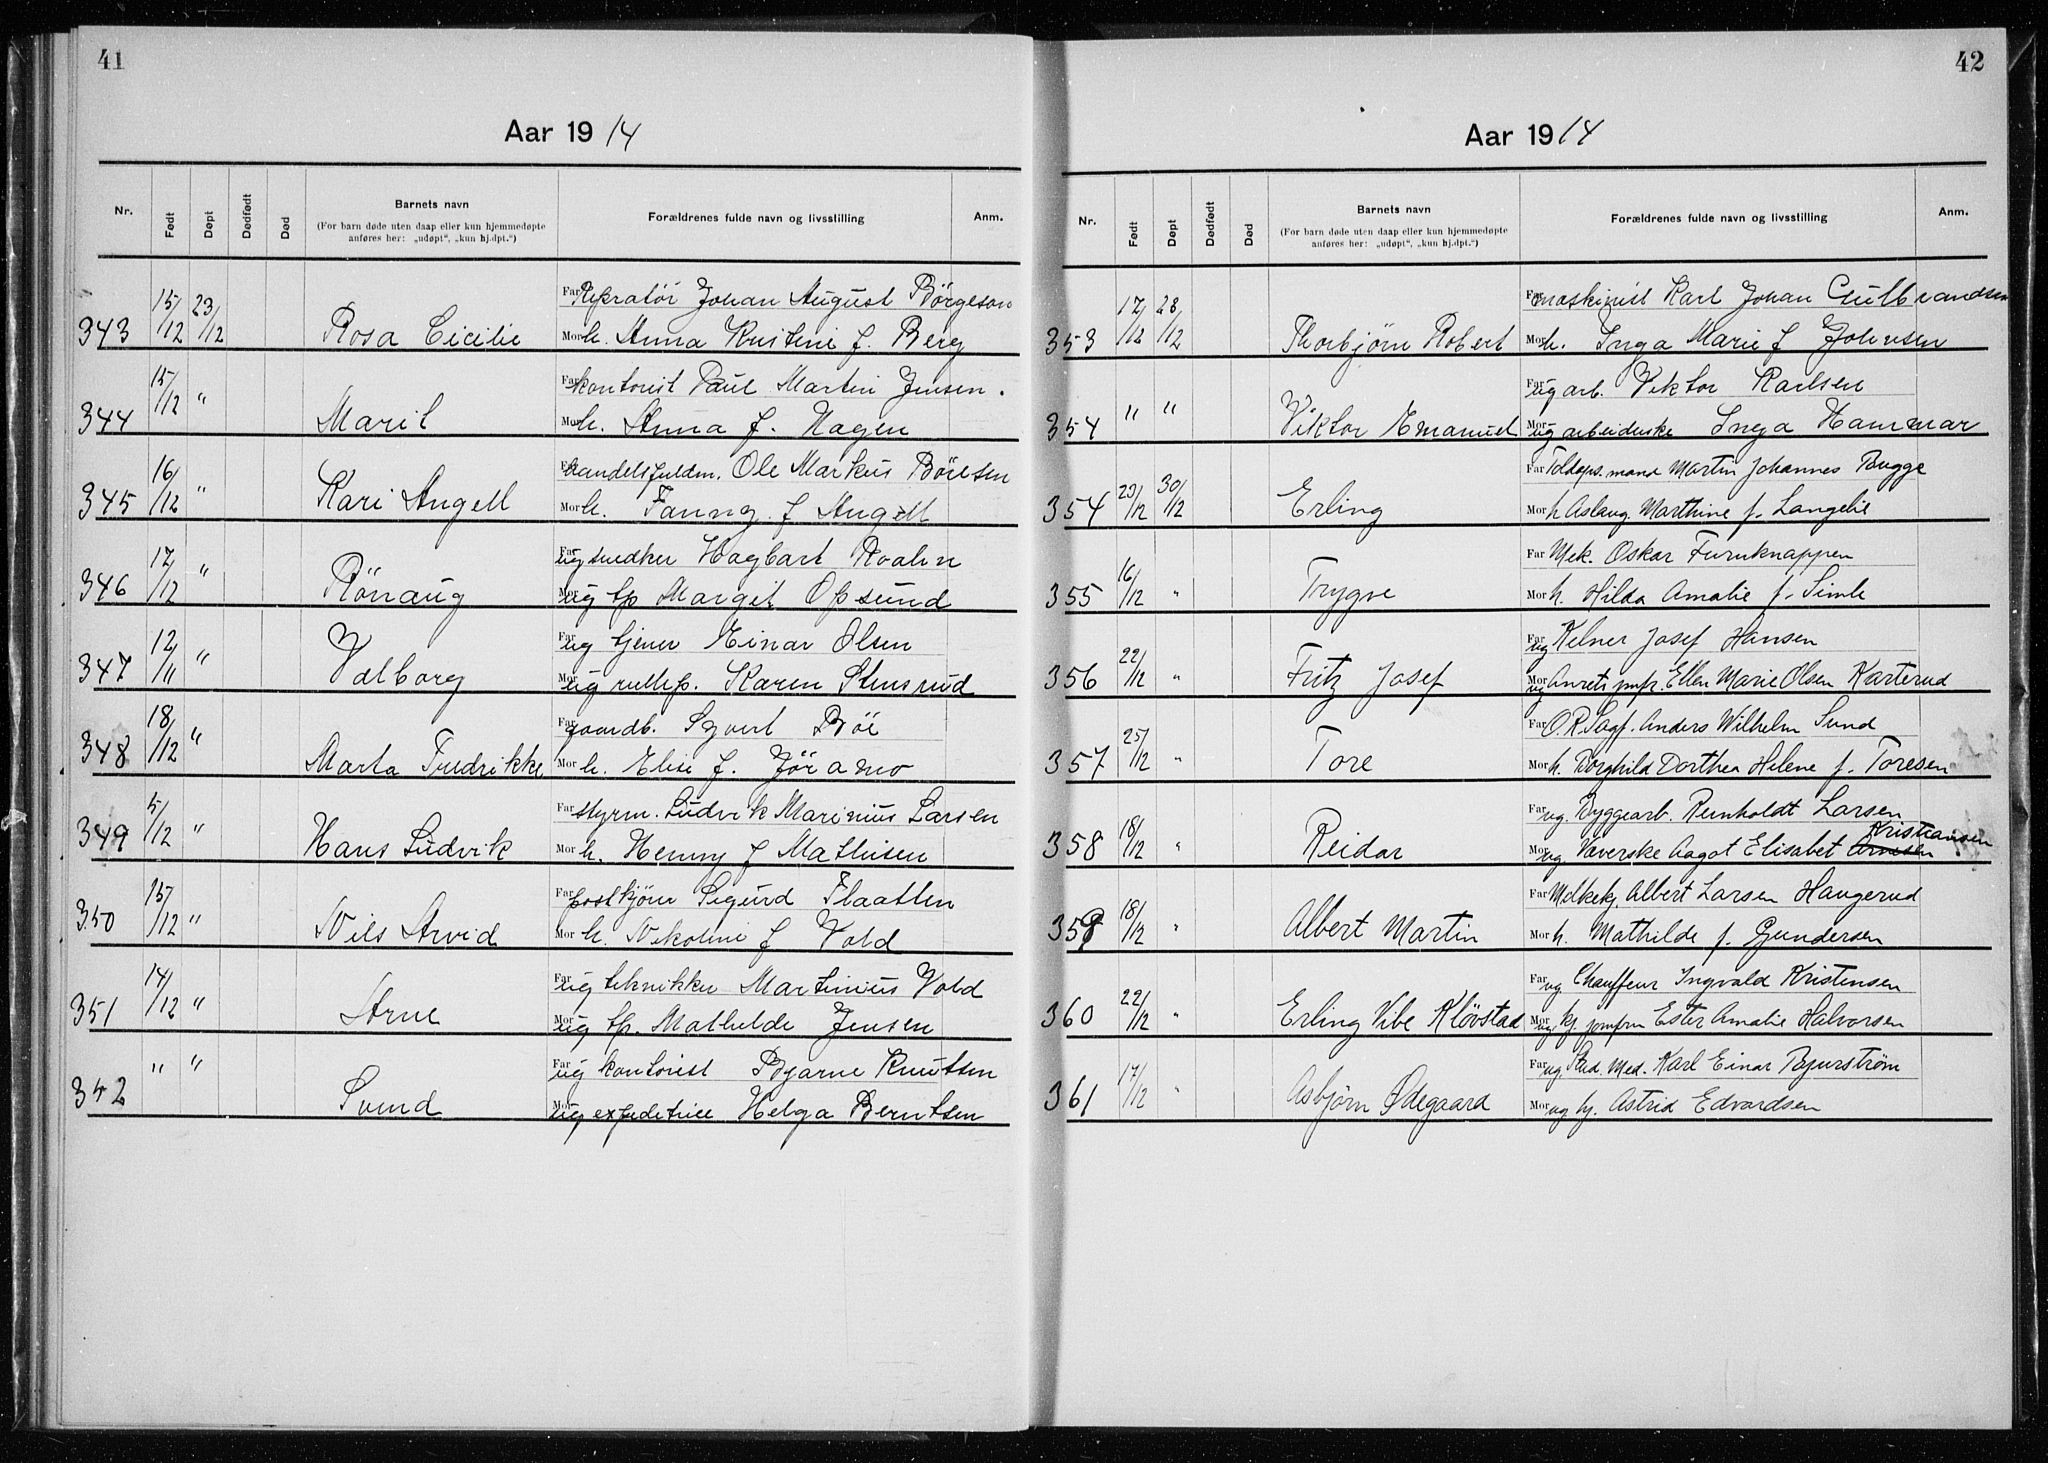 41
Aar 1914
Nr. Født Døpt Dødfødt Død Barnets navn Forældrenes fulde navn og livsstilling Anm.
(For barn døde uten daap eller kun hjemmedøpte
anføres her: „udøpt“, „kun hj.dpt.“)
Far Johan August Börgeson
343 15/12 23/12 Rosa Cicilie Mor h. Anna Kristine f. Berg
Far kontorist Paul Martin Jensen.
344 15/12 " Marit Mor h. Anna f. Hagen
Far handelsfuldm. Ole Markus Böresen
345 16/12 " Kari Angell Mor h. Fanny f Angell
Far ug snedker Hagbart
346 17/12 " Rönaug Mor ug tp Margit Opsund
Far ug tjener Einar Olsen
347 12/11 " Valborg Mor ug rullep. Karen Stensrud
Far gaardb. Syvert Böe
348 18/12 " Marta Fredrikke Mor h. Elise f. Jöramo
Far styrm. Ludvik Marinius Larsen
349 5/12 " Hans Ludvik Mor h. Henny f Mathisen
Far postkjörer Sigurd Flaatten
350 15/12 " Nils Arvid Mor h. Nikoline f Vold
Far ug tekniker Martinius Vold
351 14/12 " Arne Mor ug tp. Mathilde Jensen
Far ug kontorist Bjarne Knutsen
342 " " Svend Mor ug expeditrice Helga Berntsen
42
Aar 1914
Nr. Født Døpt Dødfødt Død Barnets navn Forældrenes fulde navn og livsstilling Anm.
(For barn døde uten daap eller kun hjemmedøpte
anføres her: „udøpt“, „kun hj.dpt.“)
Far maskinist Karl Johan Gulbrandsen
353 17/12 28/12 Thorbjørn Robert Mor h. Inga Marie f Johnsen
Far ug arb. Viktor Karlsen
354 " " Viktor Emanuel Mor ug arbeiderske Inga Hammar
Far Toldops.mand Martin Johannes Bugge
354 23/12 30/12 Erling Mor h Aslaug Marthine f. Langelie
Far Mek. Oskar Furuknappen
355 16/12 " Trygve Mor h. Hilda Amalie f. Simle
Far ug Kelner Josef Hansen
356 22/12 " Fritz Josef Mor ug Anrets jmfr. Ellen Marie Olsen Karterud
Far O.R.Sagf. Anders Wilhelm Sund
357 25/12 " Tore Mor h. Borghild Dorthea Helene f. Toresen
Far ug. Byggearb. Reinholdt Larsen
Kristiansen
358 18/12 " Reidar Mor ug. Væverske Aagot Elisabet Arnesen
Far Melkekj. Albert Larsen Haugerud
359 18/12 " Albert Martin Mor h. Mathilde f. Gundersen
Far ug Chauffeur Ingvald Kristensen
360 22/12 " Erling Vibe Kløvstad Mor ug. kj. jomfru Ester Amalie Halvorsen
Far ug. Stud. Med. Karl Einar Bjurström
361 17/12 " Asbjørn Ødegaard Mor ug hj. Astrid Edvardsen